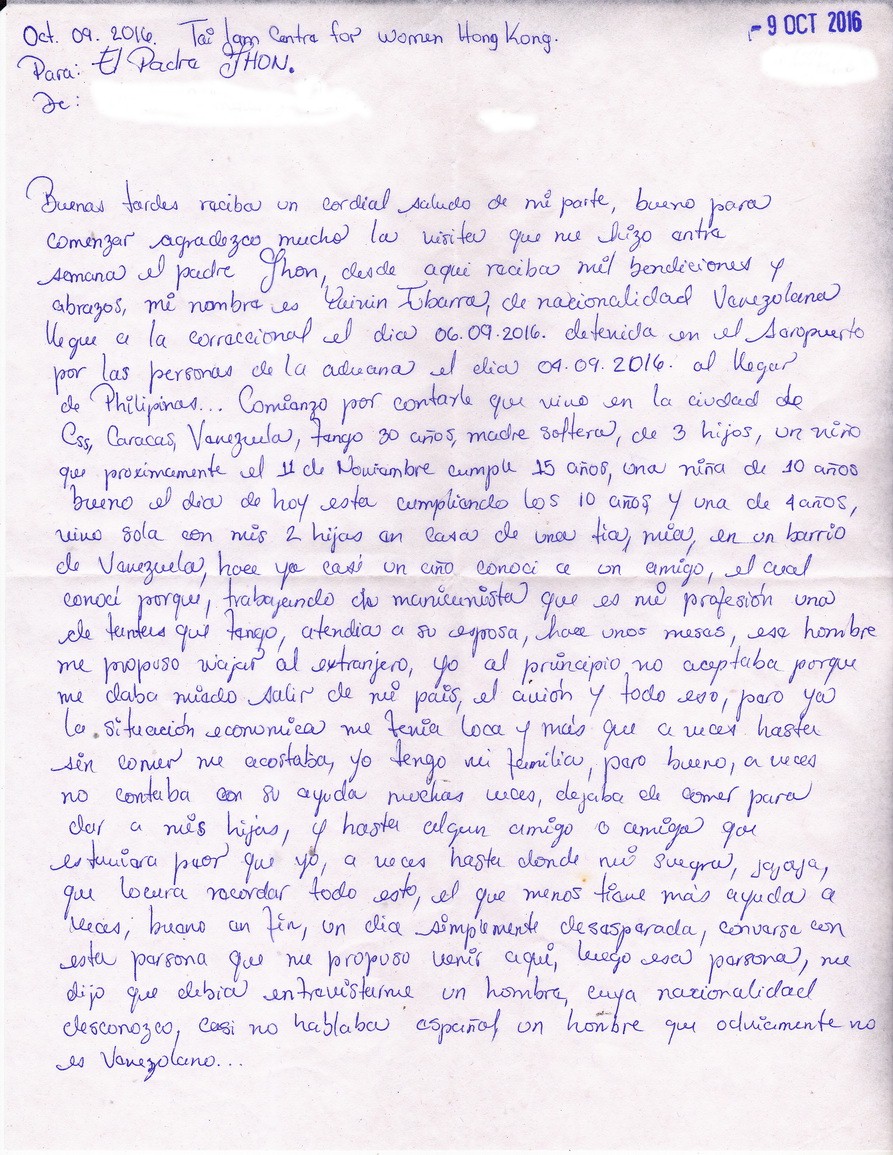 Oct. 09. 2016. Tai Lam Centre for women Hong Kong.
- 9 OCT 2016
Para: El Padre JHON.
De:
Buenas tardes reciba un cordial saludo de mi parte, bueno para
comenzar agradezco mucho la visita que me hizo entre
semana el padre Jhon, desde aqui reciba mil bendiciones y
abrazos, mi nombre es Ibarra, de nacionalidad Venezolana
llegue a la correccional el dia 06.09.2016. detenida en el Aeropuerto
por las personas de la aduana el dia 04.09.2016. al llegar
de Philipinas... Comienzo por contarle que vivo en la ciudad de
Css, Caracas, Venezuela, tengo 30 años, madre soltera, de 3 hijos, un niño
que proximamente el 11 de Noviembre cumple 15 años, una niña de 10 años
bueno el dia de hoy esta cumpliendo los 10 años y una de 4 años,
vivo sola con mis 2 hijas en casa de una tia, mia, en un barrio
de Venezuela, hace ya casi un año conoci a un amigo, el cual
conocí porque, trabajando de manicurista que es mi profesión una
de tantas que tengo, atendia a su esposa, hace unos meses, ese hombre
me propuso viajar al extranjero, yo al principio no aceptaba porque
me daba miedo salir de mi pais, el avión y todo eso, pero ya
la situación economica me tenia loca y más que a veces hasta
sin comer me acostaba, yo tengo mi familia, pero bueno, a veces
no contaba con su ayuda muchas veces, dejaba de comer para
dar a mis hijas, y hasta algun amigo o amiga que
estuviera peor que yo, a veces hasta donde mi suegra, jajaja,
que locura recordar todo esto, el que menos tiene más ayuda a
veces; bueno en fin, un dia simplemente desesperada, converse con
esta persona que me propuso venir aquí, luego esa persona, me
dijo que debia entrevistarme un hombre, cuya nacionalidad
desconozco, casi no hablaba español, un hombre que odviamente no
es Venezolano...